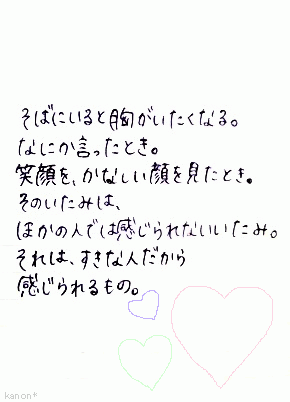 そばにいると胸がいたくなる。
なにか言ったとき。
笑顔を、かなしい顔を見たとき。
そのいたみは、
ほかの人では感じられないいたみ。
それは、すきな人だから
感じられるもの。
kanon*